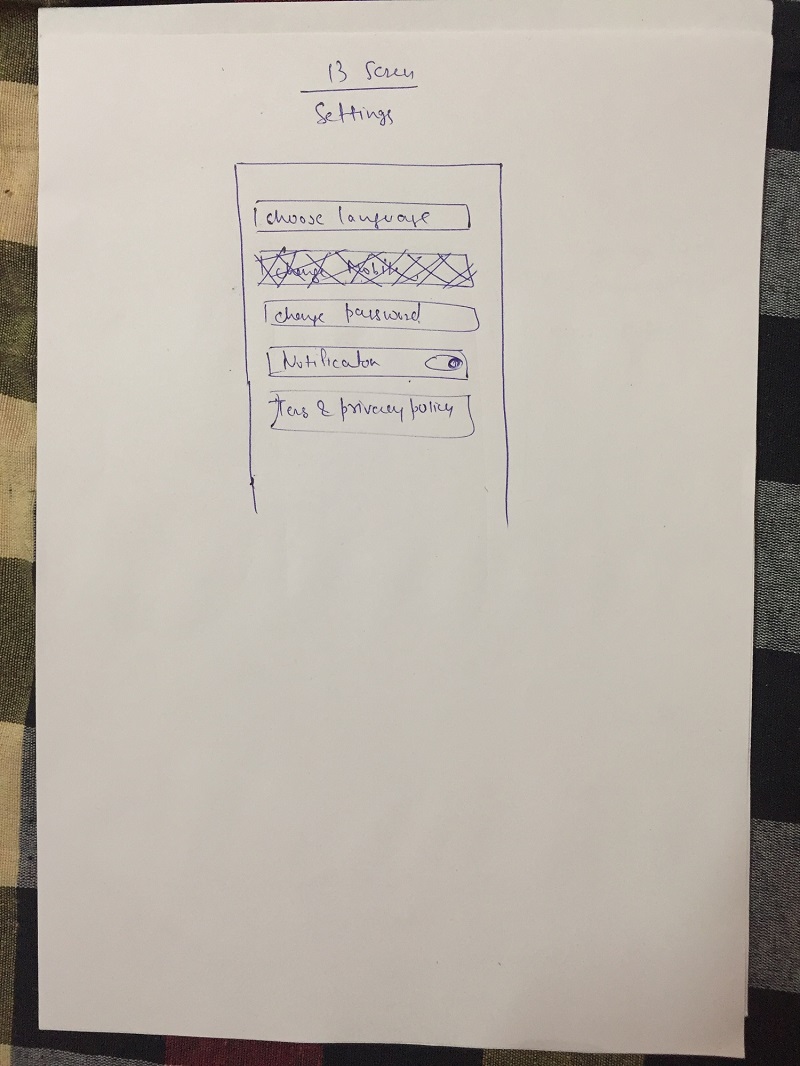 13 Screen
Settings
choose language
change Mobile
change password
Notification
Tems & privacy policy